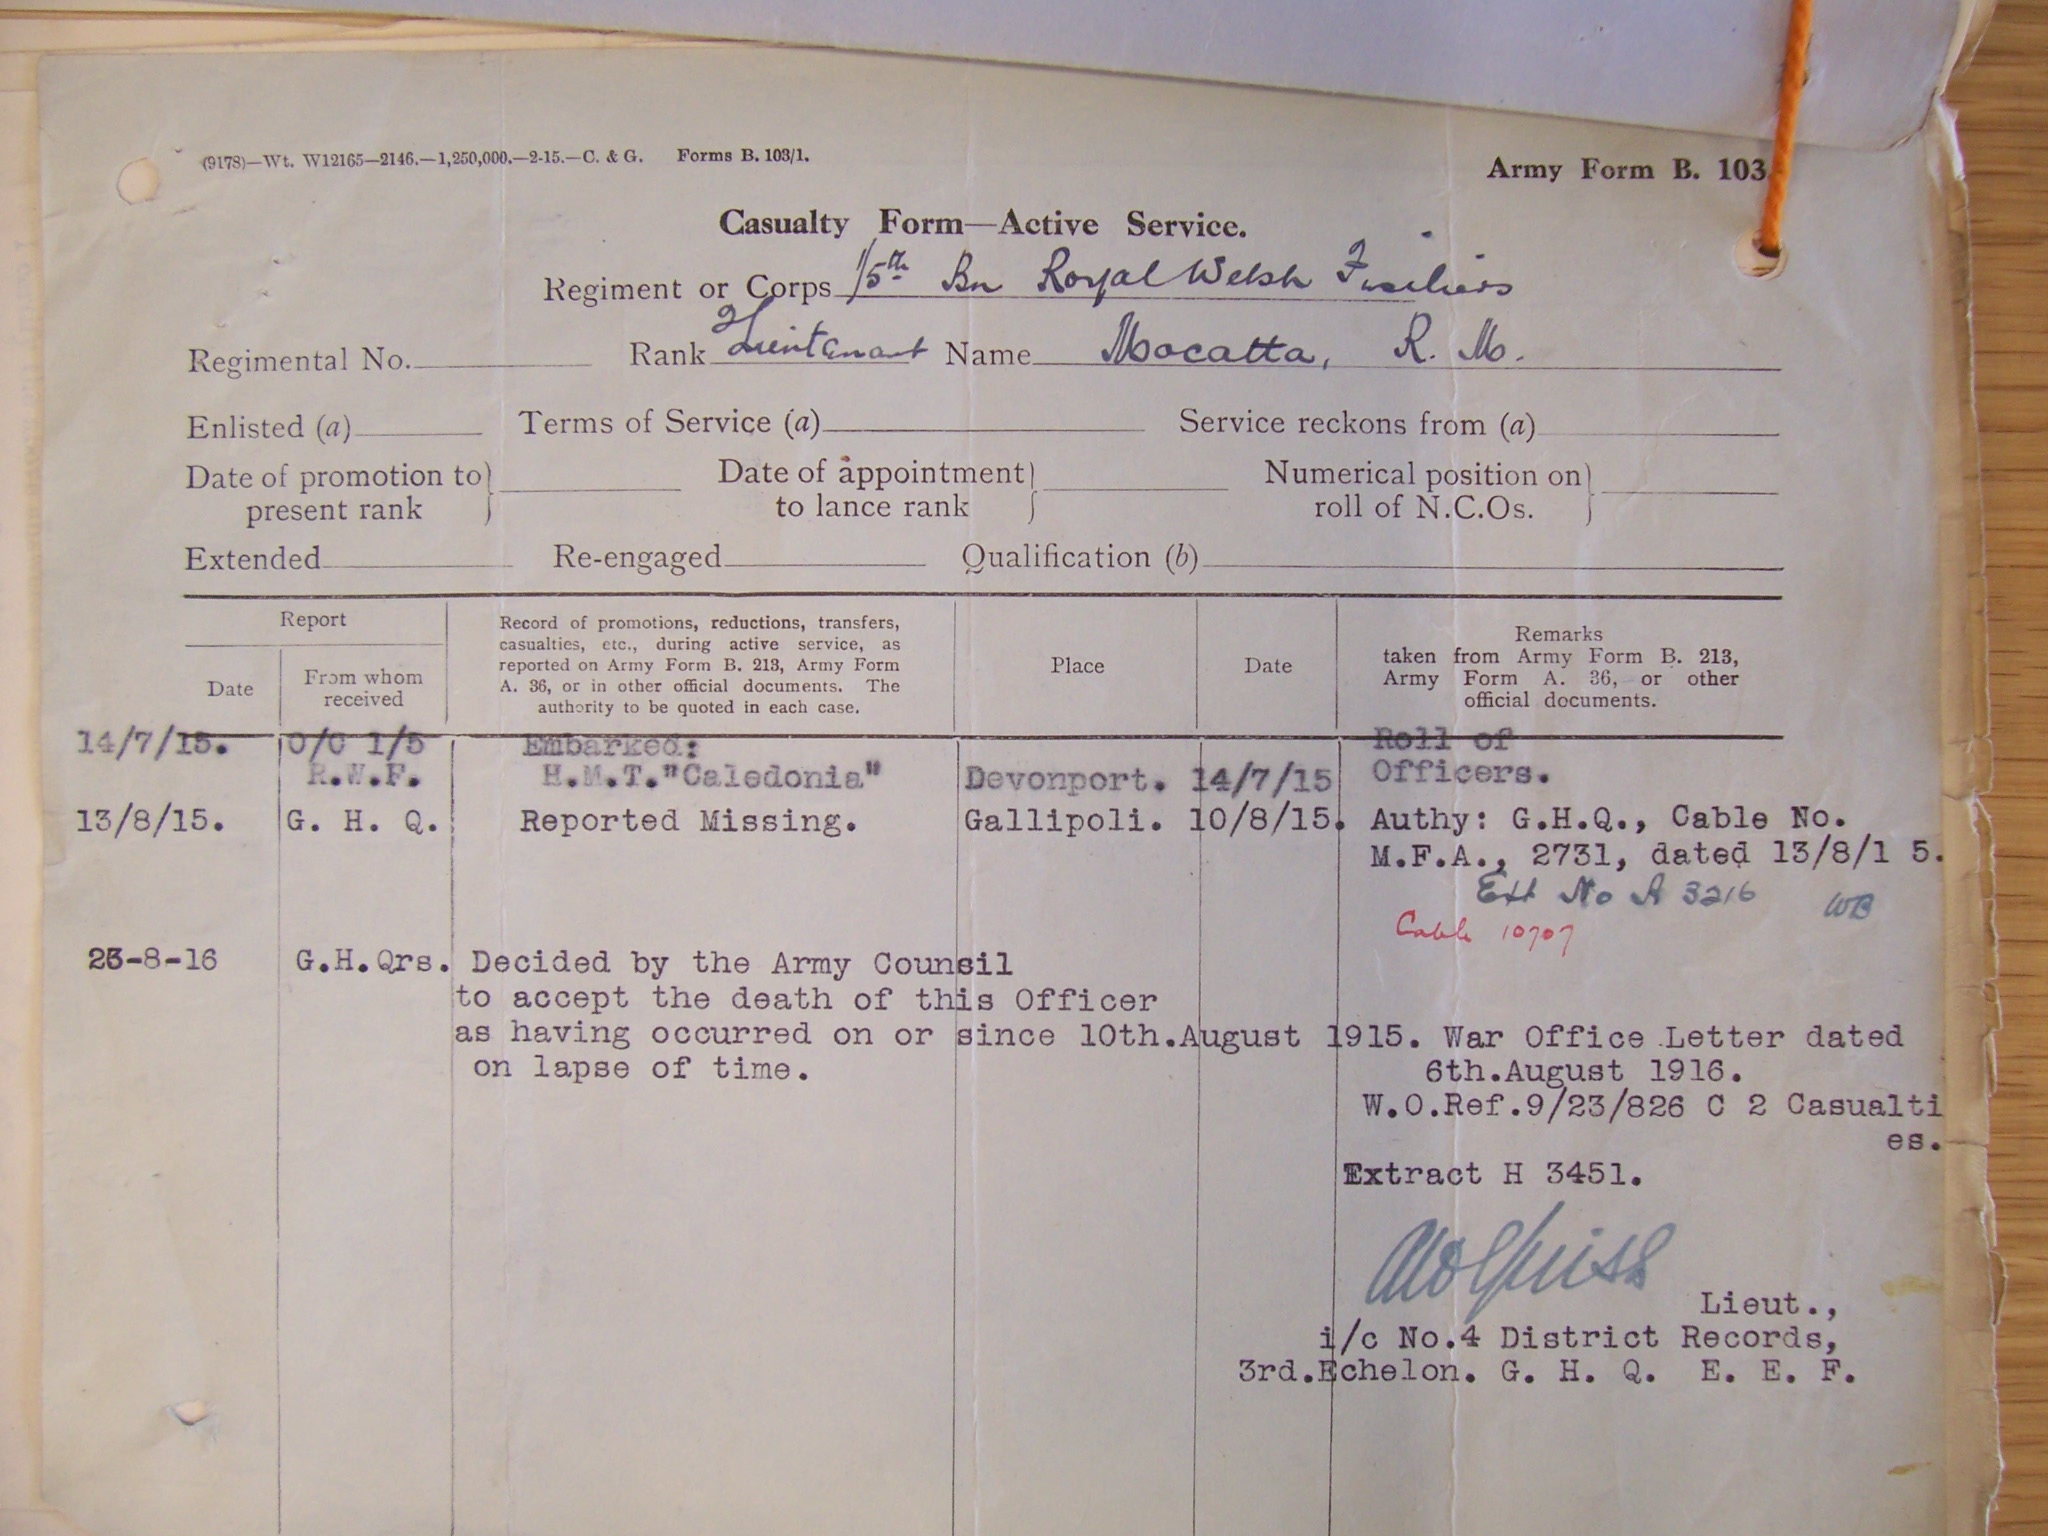 (9178)—Wt. W12165—2146.—1,250,000.—2-15.—C. & G. Forms B. 103/1.
Army Form B. 103
Casualty Form—Active Service.
Regiment or Corps 1/5th Bn Royal Welsh Fusiliers
Regimental No. Rank Lieutenant Name Mocatta, R. M.
Enlisted (a) Terms of Service (a) Service reckons from (a)
Date of promotion to Date of appointment Numerical position on
present rank to lance rank roll of N.C.Os.
Extended Re-engaged Qualification (b)
Report
Date
From whom
received
Record of promotions, reductions, transfers,
casualties, etc., during active service, as
reported on Army Form B. 213, Army Form
A. 36, or in other official documents. The
authority to be quoted in each case.
Place
Date
Remarks
taken from Army Form B. 213,
Army Form A. 36, or other
official documents.
14/7/15. O/C 1/5 Embarked: Roll of
R.W.F. H.M.T."Caledonia" Devonport. 14/7/15 Officers.
13/8/15. G. H. Q. Reported Missing. Gallipoli. 10/8/15. Authy: G.H.Q., Cable No.
M.F.A., 2731, dated 13/8/1 5.
Ext No A 3216 WB
Cable 10707
-8-16 G.H.Qrs. Decided by the Army Council
to accept the death of this Officer
as having occurred on or since 10th.August 1915. War Office Letter dated
on lapse of time. 6th.August 1916.
W.O.Ref.9/23/826 C 2 Casualti
es.
Extract H 3451.
Lieut.,
i/c No.4 District Records,
3rd.Echelon. G. H. Q. E. E. F.